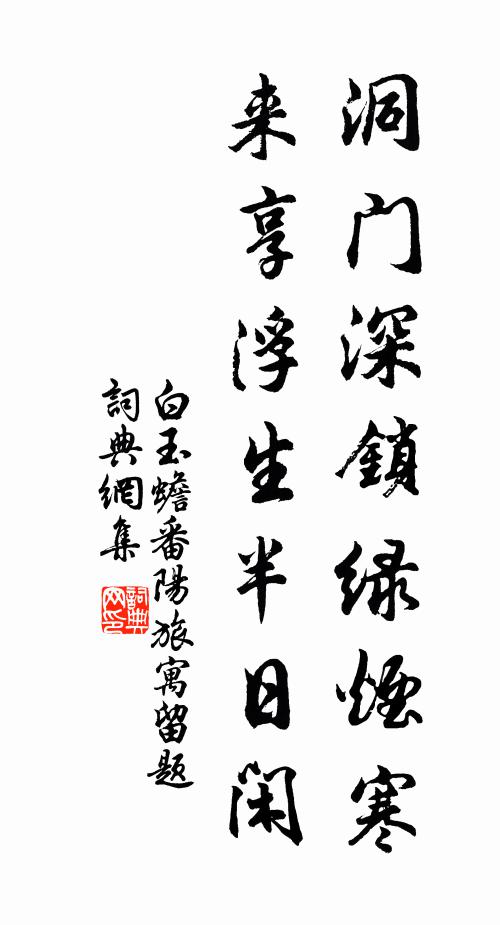 洞门深鎖緑煙寒
来享浮生半日閑
白玉蟾番陽旅寓留题
詞典網集
詞典网印